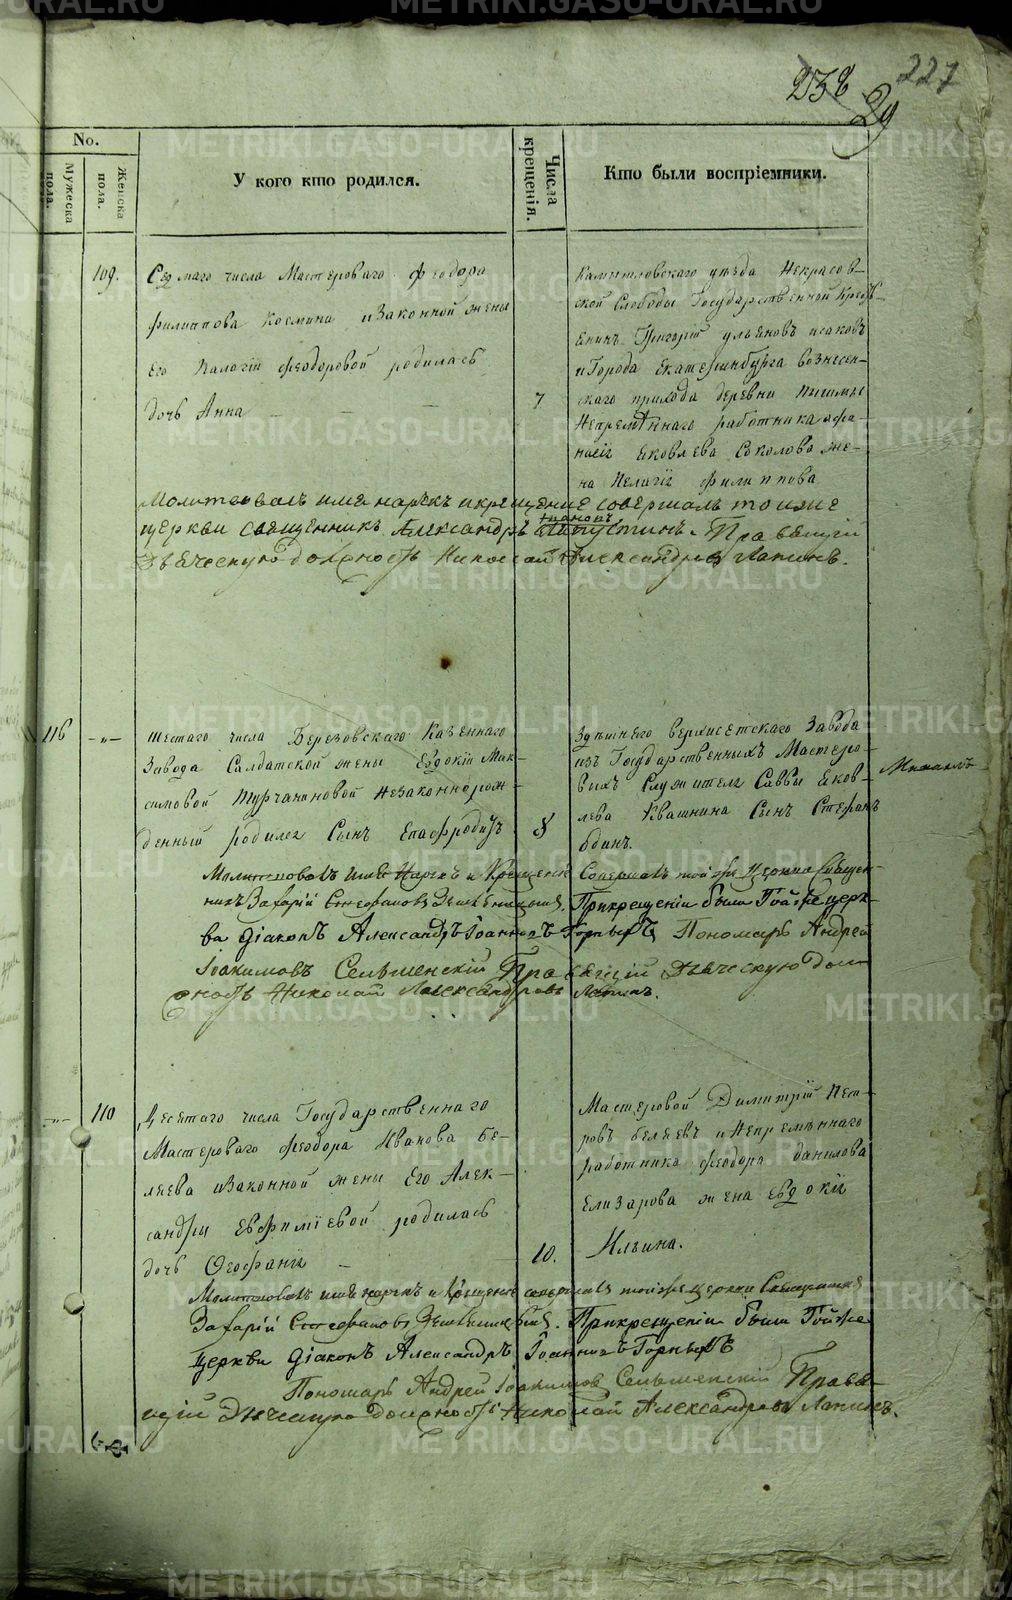 238
227
29
No.
Мужеска пола.
Женска пола.
У кого кто родился.
Числа крещенія.
Кто были воспріемники.
109.
Седмаго числа Мастероваго Феодора
Филиппова Космина и Законной жены
Его Палагіи Феодоровой родилась
дочь Анна
7
Камышловскаго уезда Некрасов-
ской Слободы Государственной Кресть-
енинъ Григорій Ульяновъ Исаковъ
и Города Екатеринбурга вознесен-
скаго прихода деревни
Непременнаго работника Афа-
насія Яковлева Соколова же-
на Пелагія Филиппова
Молитвовалъ имя нарекъ и крещение совершалъ тоя же
церкви священникъ Александръ Правящій
дьяческую должность Николай Александровъ Лапинъ.
116
Шестаго числа Березовскаго Казеннаго
Завода Салдатской жены Евдокіи Мак-
симовой Турчаниновой Незаконнорож-
денный родился Сынъ Епафродитъ
8
Здешнего верхисетскаго Завода
изъ Государственныхъ Мастеро-
выхъ Служителя Саввы Яков-
лева Квашнина Сынъ Стефанъ
одинъ.
Молитвовалъ имя Нарекъ и Крещение Совершалъ той же Церкви Священ-
никъ Захарій Стефановъ При крещеніи были Той же церк-
ви Діаконъ Александръ Іоанновъ Горныхъ Пономарь Андрей
Іоакимовъ Сельменскій Правящій Дьяческую дол-
жность Николай Александровъ Лапинъ.
110
Десятаго числа Государственнаго
Мастероваго Феодора Иванова Бе-
ляева и Законной жены Его Алек-
сандры Евфиміевой родилась
дочь Феофанія
10.
Мастеровой Димитрій Пет-
ровъ Беляевъ и Непременнаго
работника Феодора Данилова
Елизарова жена Евдокія
Ильина.
Молитвовалъ имя нарекъ и Крещеніе совершалъ той же Церкви Священникъ
Захарій Стефановъ При крещеніи были Той же
Церкви Діаконъ Александръ Іоанновъ Горныхъ
Пономарь Андрей Іоакимовъ Сельменскій Правя-
щій Дьяческую должность Николай Александровъ Лапинъ.
METRIKI.GASO-URAL.RU